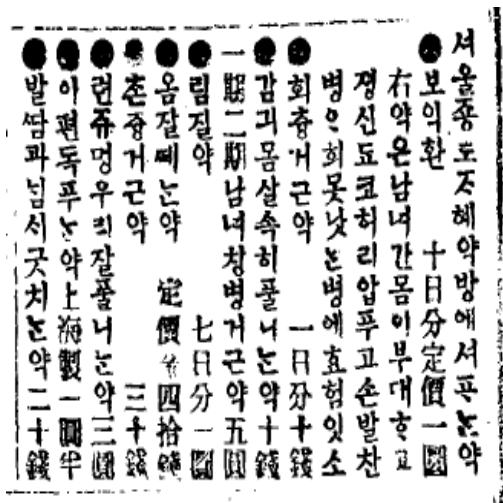 셔울죵로 ᄌᆞ혜약방에셔 프ᄂᆞᆫ약
●보익환 十日分定價一圜
右약은남녀간몸이부대ᄒᆞ고
졍신도코허리압푸고손발찬
병으희못낫ᄂᆞᆫ병에효험잇소
●회츙거근약 一日分十錢
●감긔몸살속히풀니ᄂᆞᆫ약十錢
一期二期남녀창병거근약五圜
●림질약 七日分一圜
●옴잘떼ᄂᆞᆫ약 定價四拾錢
●촌츙거근약 三十錢
●련쥬멍우리잘풀니ᄂᆞᆫ약三圜
●아편독푸ᄂᆞᆫ약上海製一圜半
●발땀과님시긋치ᄂᆞᆫ약二十錢